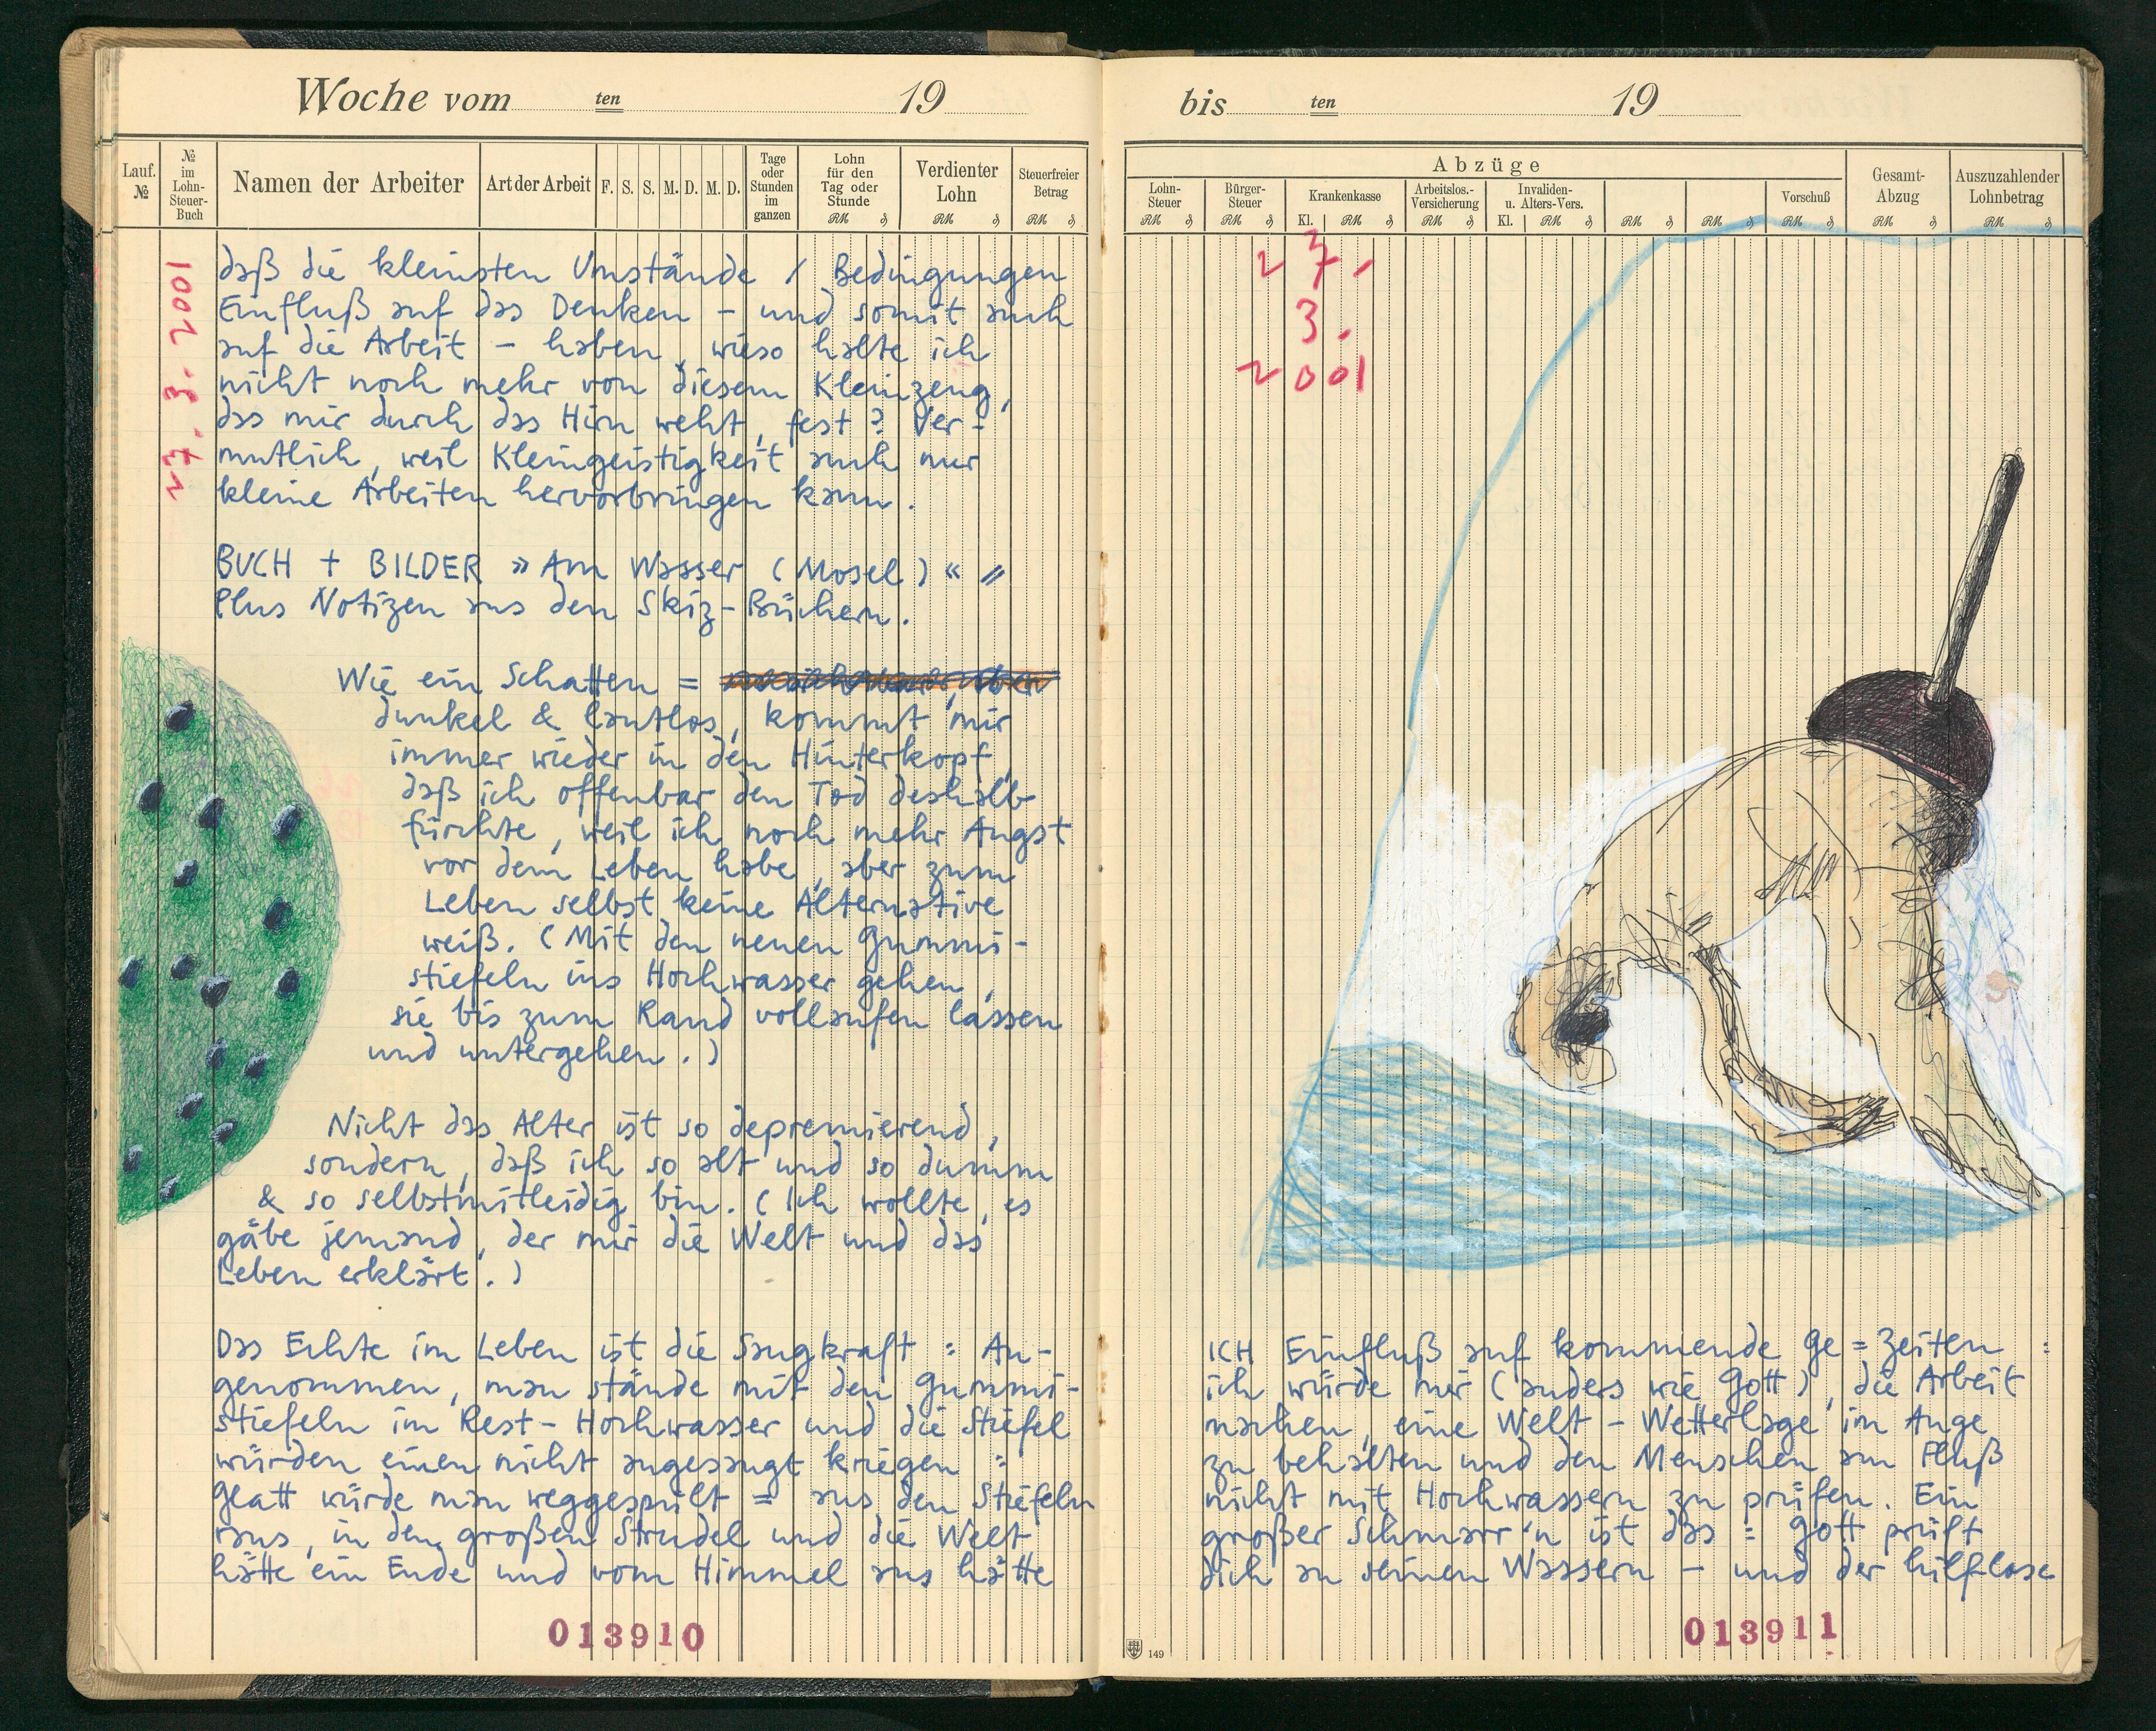 Woche vom ten 19
Lauf. №
№ im Lohn-Steuer-Buch
Namen der Arbeiter
Art der Arbeit
F. S. S. M. D. M. D.
Tage oder Stunden im ganzen
Lohn für den Tag oder Stunde RM ₰
Verdienter Lohn RM ₰
Steuerfreier Betrag RM ₰
27. 3. 2001
daß die kleinsten Umstände / Bedingungen
Einfluß auf das Denken – und somit auch
auf die Arbeit – haben, wieso halte ich
nicht noch mehr von diesem Kleinzeug,
das mir durch das Hirn weht, fest? Ver=
mutlich, weil Kleingeistigkeit auch nur
kleine Arbeiten hervorbringen kann.
BUCH + BILDER »Am Wasser (Mosel)« //
Plus Notizen aus den Skiz-Büchern.
Wie ein Schatten =
dunkel & lautlos, kommt mir
immer wieder in den Hinterkopf,
daß ich offenbar den Tod deshalb
fürchte, weil ich noch mehr Angst
vor dem Leben habe, aber zum
Leben selbst keine Alternative
weiß. (Mit den neuen Gummi-
stiefeln ins Hochwasser gehen,
sie bis zum Rand vollaufen lassen
und untergehen.)
Nicht das Alter ist so deprimierend,
sondern, daß ich so alt und so dumm
& so selbstmitleidig bin. (Ich wollte, es
gäbe jemand, der mir die Welt und das
Leben erklärt.)
Das Echte im Leben ist die Saugkraft : An-
genommen, man stände mit den Gummi-
stiefeln im Rest-Hochwasser und die Stiefel
würden einen nicht angesaugt kriegen :
Glatt würde man weggespült = aus den Stiefeln
raus, in den großen Strudel und die Welt
hätte ein Ende und vom Himmel aus hätte
013910
bis ten 19
Abzüge
Lohn-Steuer RM ₰
Bürger-Steuer RM ₰
Krankenkasse Kl. RM ₰
Arbeitslos.-Versicherung RM ₰
Invaliden- u. Alters-Vers. Kl. RM ₰
RM ₰
RM ₰
Vorschuß RM ₰
Gesamt-Abzug RM ₰
Auszuzahlender Lohnbetrag RM ₰
27.
3.
2001
ICH Einfluß auf kommende Ge=Zeiten :
ich würde mir (anders wie Gott), die Arbeit
machen, eine Welt-Wetterlage im Auge
zu behalten und den Menschen am Fluß
nicht mit Hochwassern zu prüfen. Ein
großer Schmarr'n ist das : Gott prüft
dich an seinen Wassern – und der hilflose
013911
149